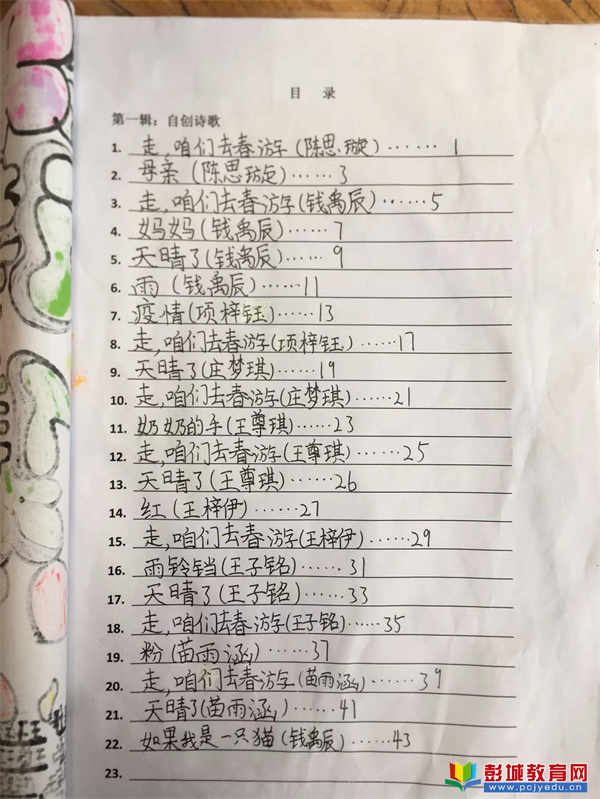 目 录
第一辑：自创诗歌
1. 走,咱们去春游(陈思璇)……1
2. 母亲(陈思璇)……3
3. 走,咱们去春游(钱禹辰)……5
4. 妈妈(钱禹辰)……7
5. 天晴了(钱禹辰)……9
6. 雨(钱禹辰)……11
7. 疫情(项梓钰)……13
8. 走,咱们去春游(项梓钰)……17
9. 天晴了(庄梦琪)……19
10. 走,咱们去春游(庄梦琪)……21
11. 奶奶的手(王尊琪)……23
12. 走,咱们去春游(王尊琪)……25
13. 天晴了(王尊琪)……26
14. 红(王梓伊)……27
15. 走,咱们去春游(王梓伊)……29
16. 雨铃铛(王子铭)……31
17. 天晴了(王子铭)……33
18. 走,咱们去春游(王子铭)……35
19. 粉(苗雨涵)……37
20. 走,咱们去春游(苗雨涵)……39
21. 天晴了(苗雨涵)……41
22. 如果我是一只猫(钱禹辰)……43
23.
彭城教育网
www.pcjyedu.cn